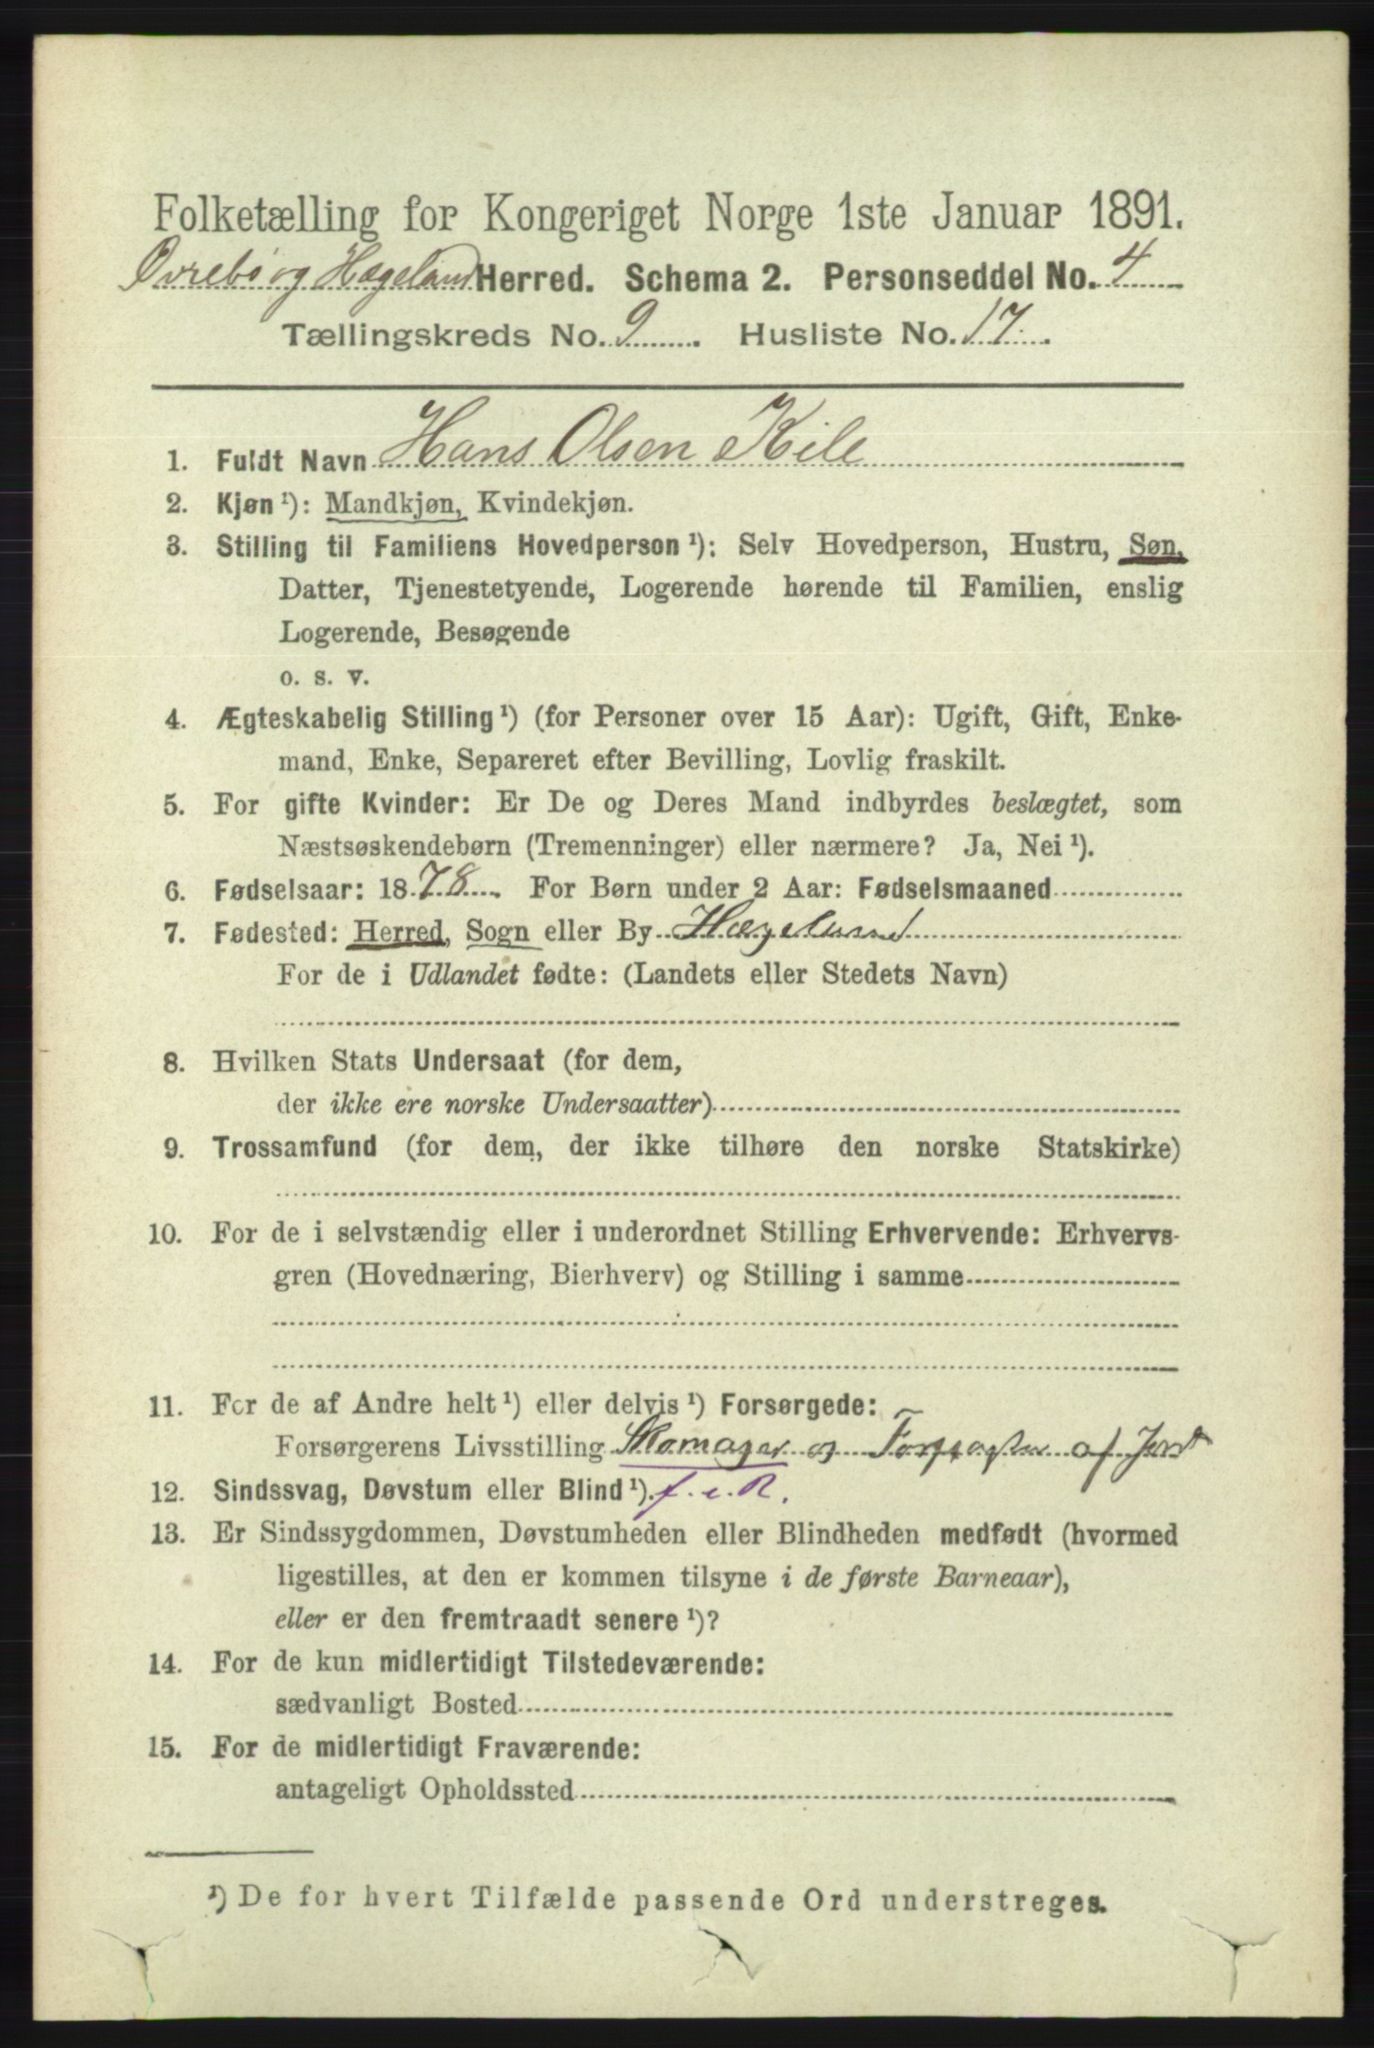 Folketælling for Kongeriget Norge 1ste Januar 1891.
Øvrebø og Hægeland Herred. Schema 2. Personseddel No. 4
Tællingskreds No. 9. Husliste No. 17.
1. Fuldt Navn Hans Olsen Kile
2. Kjøn¹): Mandkjøn, Kvindekjøn.
3. Stilling til Familiens Hovedperson¹): Selv Hovedperson, Hustru, Søn,
Datter, Tjenestetyende, Logerende hørende til Familien, enslig
Logerende, Besøgende
o. s. v.
4. Ægteskabelig Stilling¹) (for Personer over 15 Aar): Ugift, Gift, Enke-
mand, Enke, Separeret efter Bevilling, Lovlig fraskilt.
5. For gifte Kvinder: Er De og Deres Mand indbyrdes beslægtet, som
Næstsøskendebørn (Tremenninger) eller nærmere? Ja, Nei¹).
6. Fødselsaar: 1878. For Børn under 2 Aar: Fødselsmaaned
7. Fødested: Herred, Sogn eller By Hægeland
For de i Udlandet fødte: (Landets eller Stedets Navn)
8. Hvilken Stats Undersaat (for dem,
der ikke ere norske Undersaatter)
9. Trossamfund (for dem, der ikke tilhøre den norske Statskirke)
10. For de i selvstændig eller i underordnet Stilling Erhvervende: Erhvervs-
gren (Hovednæring, Bierhverv) og Stilling i samme
11. For de af Andre helt¹) eller delvis¹) Forsørgede:
Forsørgerens Livsstilling Skomager og Forpagter af Jord
12. Sindssvag, Døvstum eller Blind¹).
13. Er Sindssygdommen, Døvstumheden eller Blindheden medfødt (hvormed
ligestilles, at den er kommen tilsyne i de første Barneaar),
eller er den fremtraadt senere¹)?
14. For de kun midlertidigt Tilstedeværende:
sædvanligt Bosted
15. For de midlertidigt Fraværende:
antageligt Opholdssted
¹) De for hvert Tilfælde passende Ord understreges.